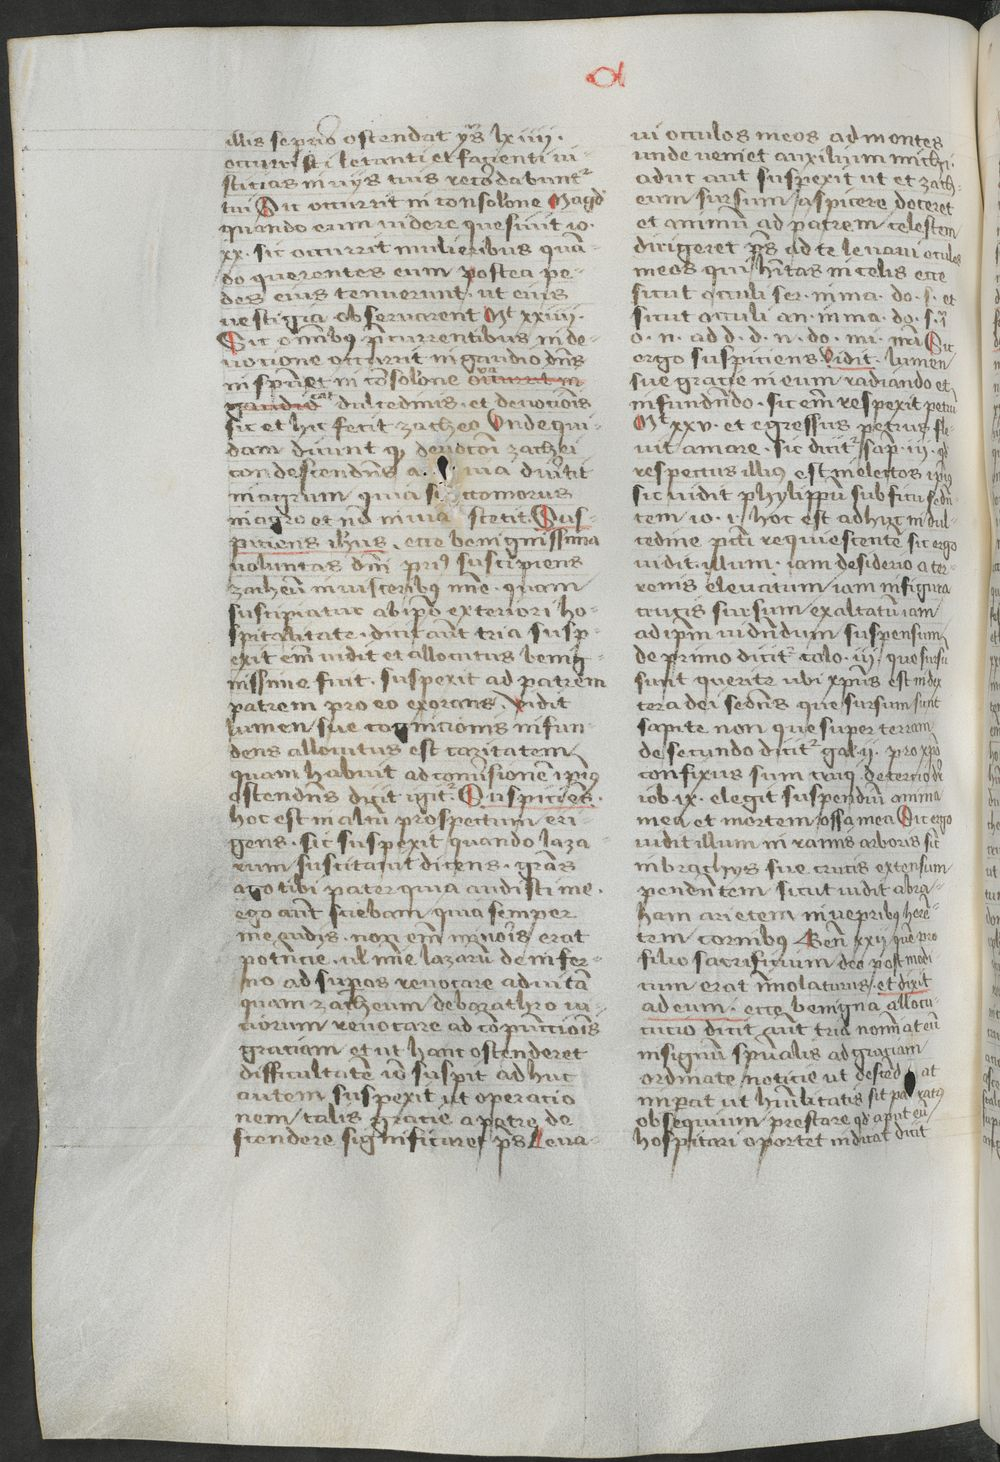 a
illis se prius ostendat ys lxiiii.
occurristi letanti et facienti iu-
sticias in viis tuis recordabuntr
tui Sic occurrit in consolone Magd
quando eum videre quesivit io.
xx. sic occurrit mulieribus quan-
do querentes eum postea pe-
des eius tenuerunt. ut eius
vestigia observarent Mt xxiiii.
Sic omnibus currentibus in de-
votione occurrit in gaudio dns
in spu et in consolone
dulcedinis. et devocionis
sic et hic fecit zacheo Unde qui-
dam dicunt qd devocioni zachei
condescendens a via divertit
in agrum quia siccomorus
in agro et non in via stetit. Sus-
piciens ihus. ecce benignissima
voluntas dni prius suscipiens
zacheum in visceribus mie. quam
suscipiatur ab ipso exteriori ho-
spitalitate. dicit aut tria susp-
exit eni vidit et allocutus benig-
nissime fuit. suspexit ad patrem
patrem pro eo exorans. vidit
lumen sue cognicionis infun-
dens allocutus est caritatem
quam habuit ad conversionem ipius
ostendens dicit igitr. Suspiciens.
hoc est in altum prospectum eri-
gens. sic suspexit quando laza-
rum suscitavit dicens. gras
ago tibi pater quia audisti me.
ego aut sciebam quia semper
me audis. non eni minoris erat
potencie. ul mie lazarum de infer-
no ad superos revocare ad vitam
quam zacheum de barathro vi-
ciorum revocare ad compunccionis
graciam et ut hanc ostenderet
difficultatem io suspit adhuc
autem suspexit ut operacio
nem talis gracie a patre de
scendere significaret ps Leva-
vi occulos meos ad montes
unde veniet auxilium michi.
adhuc aut suspexit ut et zach-
eum sursum aspicere doceret
et animum ad patrem celestem
dirigeret ps ad te levavi oculos
meos qui hitas in celis ecce
sicut occuli ser. in ma. do. s. et
sicut occuli an. in ma. do. s. i
o. n. ad d. d. n. do. mi. nri Sic
ergo suspiciens. vidit. lumen
sue gracie in eum radiando et
infundendo. sic eni respexit petrum
Mt xxv. et egressus petrus fle-
vit amare. sic dicitr sap. iii. qd
respectus illius est in electos ipius
sic vidit phylippum sub ficu seden-
tem io. i. hoc est adhuc in dul-
cedine pcti requiescentem sic ergo
vidit. illum. iam desiderio a ter-
renis elevatum iam in figura
crucis sursum exaltatum iam
ad ipm videndum suspensum
de primo dicitr colo. iii. que sursu
sunt querite ubi xpus est in dex
tera dei sedens que sursum sunt
sapite non que super terram
de secundo dicitr gal. ii. pro xpo
confixus sum cruci de tercio dr
iob ix. elegit suspendium anima
mea et mortem ossa mea Sic ergo
vidit illum in ramis arboris sic
in brachys sue crucis extensum
pendentem sicut vidit abra-
ham arietem in vepribus heren-
tem cornibus Gen xxij quem pro
filio sacrificium deo post modi
cum erat immolaturus. et dixit
ad eum. ecce benigna allocu-
tucio dicit aut tria nominat eum
insignum spualis ad graciam
ordinate noticie ut descend at
imperat ut humilitatis sit paratus
obsequium prestare qd aput eum
hospitari oportet indicat dicit